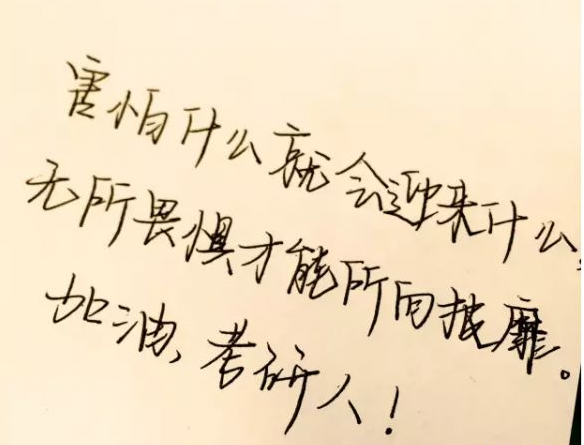 害怕什么就会迎来什么,
无所畏惧才能所向披靡。
加油、考研人!